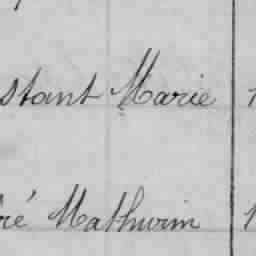 stant Marie 1
ré Mathurin 1